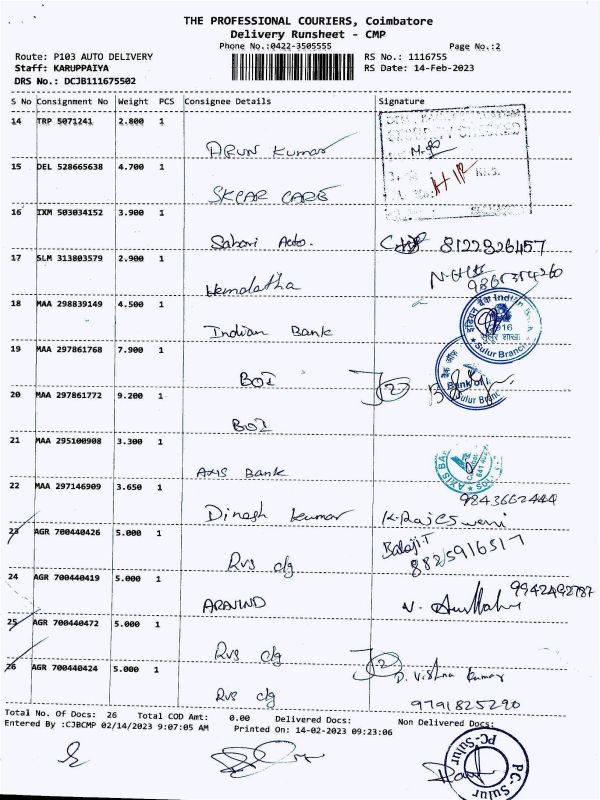 THE PROFESSIONAL COURIERS, Coimbatore
Delivery Runsheet - CMP
Phone No.:0422-3505555
Page No.:2
Route: P103 AUTO DELIVERY
RS No.: 1116755
Staff: KARUPPAIYA
RS Date: 14-Feb-2023
DRS No.: DCJB111675502
S No Consignment No Weight PCS Consignee Details Signature
14 TRP 5071241 2.800 1
SECURITY CHECKED
Arun Kumar
15 DEL 528665638 4.700 1
SKCAR CARE
16 IXM 503034152 3.900 1
Sabari Auto. 8122826457
17 SLM 313803579 2.900 1
Hemalatha
18 MAA 298839149 4.500 1
Indian Bank
इंडियन बैंक Indian
सुलूर शाखा
Sulur Branch
19 MAA 297861768 7.900 1
BOI 2
Bank of
Sulur Branch
20 MAA 297861772 9.200 1
BOI
21 MAA 295100908 3.300 1
Axis Bank
AXIS BA
22 MAA 297146909 3.650 1
9243662444
Dinesh kumar K.Rajeswari
23 AGR 700440426 5.000 1
Balaji.T
8825916517
Rvs clg
24 AGR 700440419 5.000 1
9942492787
ARAVIND
25 AGR 700440472 5.000 1
Rvs clg 2
26 AGR 700440424 5.000 1
D. Vishnu kumar
Rvs clg 9791825290
Total No. Of Docs: 26 Total COD Amt: 0.00 Delivered Docs: Non Delivered Docs:
Entered By :CJBCMP 02/14/2023 9:07:05 AM Printed On: 14-02-2023 09:23:06
PC-Sulur
PC-Sulur